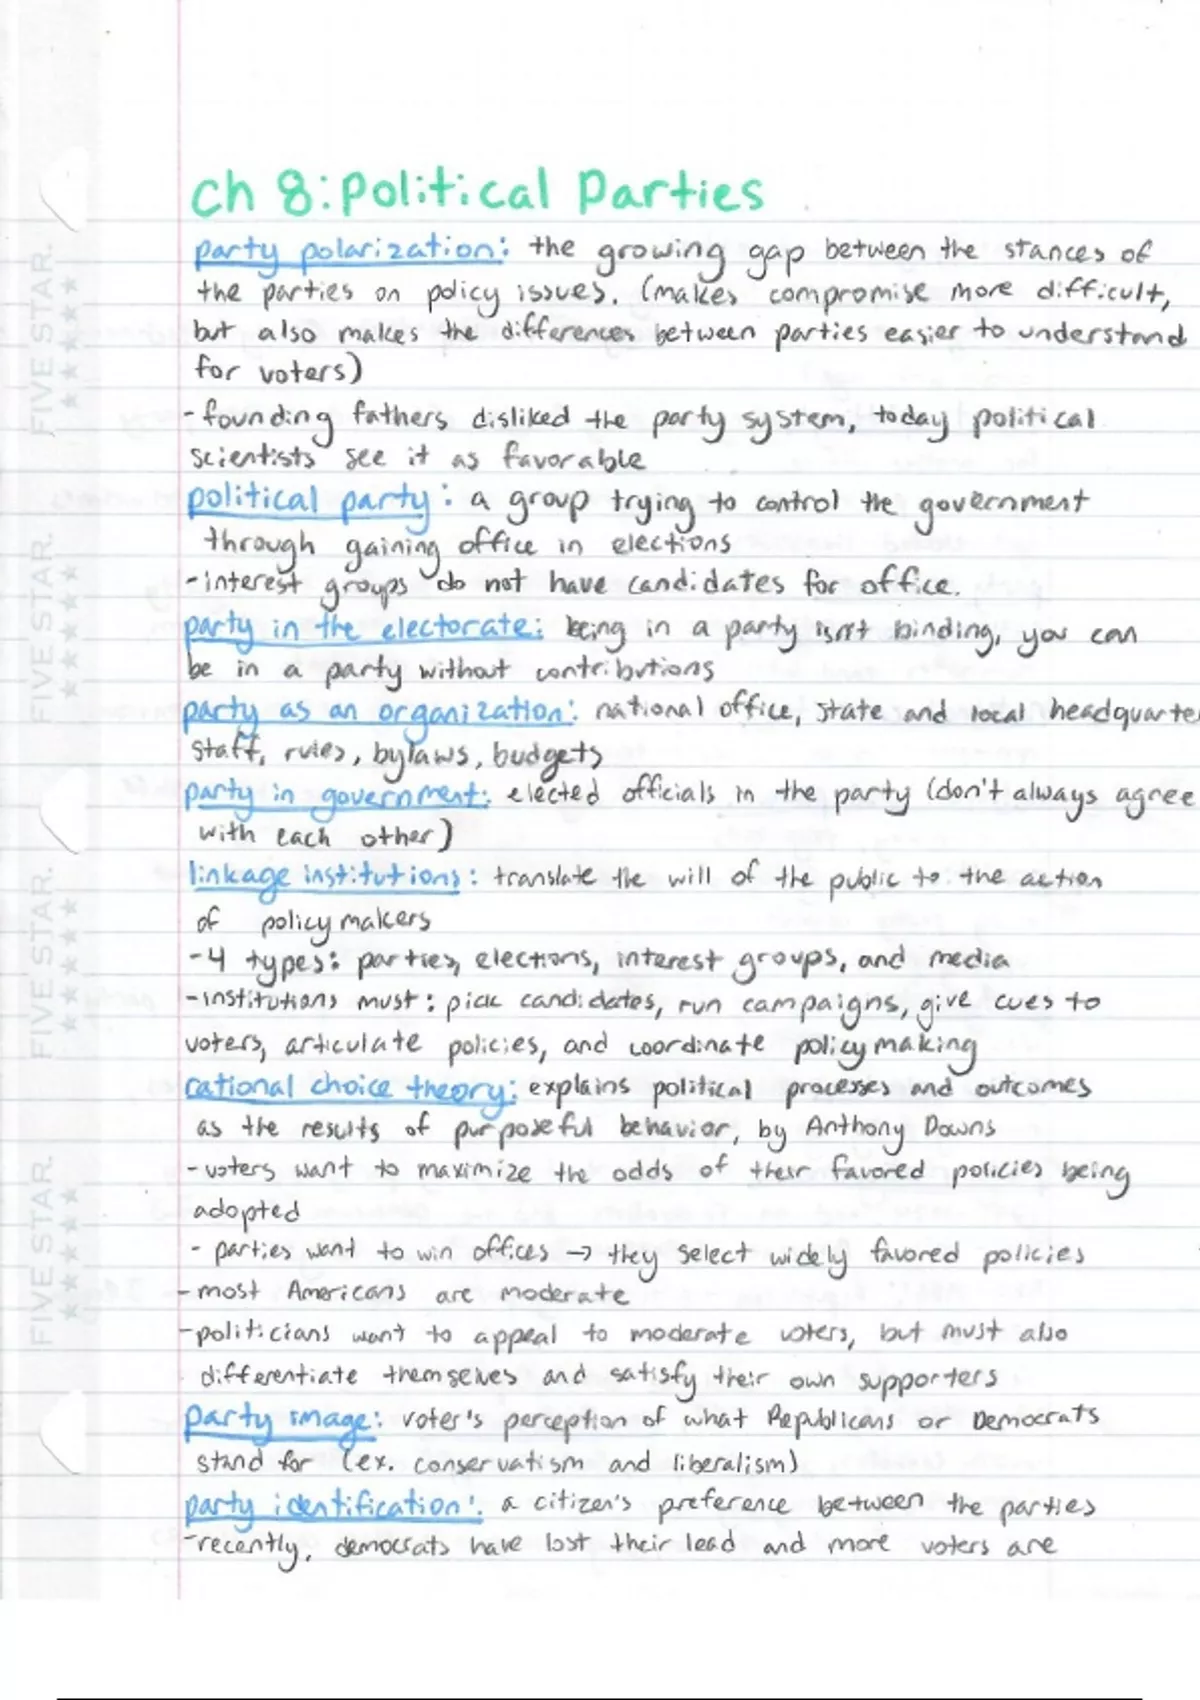 Ch 8: Political Parties
party polarization: the growing gap between the stances of
the parties on policy issues. (makes compromise more difficult,
but also makes the differences between parties easier to understand
for voters)
- founding fathers disliked the party system, today political
scientists see it as favorable
political party: a group trying to control the government
through gaining office in elections
- interest groups do not have candidates for office.
party in the electorate: being in a party isn't binding, you can
be in a party without contributions
party as an organization: national office, state and local headquarte
staff, rules, bylaws, budgets
party in government: elected officials in the party (don't always agree
with each other)
linkage institutions: translate the will of the public to the action
of policymakers
- 4 types: parties, elections, interest groups, and media
- institutions must: pick candidates, run campaigns, give cues to
voters, articulate policies, and coordinate policymaking
rational choice theory: explains political processes and outcomes
as the results of purposeful behavior, by Anthony Downs
- voters want to maximize the odds of their favored policies being
adopted
- parties want to win offices → they select widely favored policies
- most Americans are moderate
- politicians want to appeal to moderate voters, but must also
differentiate themselves and satisfy their own supporters
party image: voter's perception of what Republicans or Democrats
stand for (ex. conservatism and liberalism)
party identification: a citizen's preference between the parties
- recently, democrats have lost their lead and more voters are
FIVE STAR.
FIVE STAR.
FIVE STAR.
FIVE STAR.